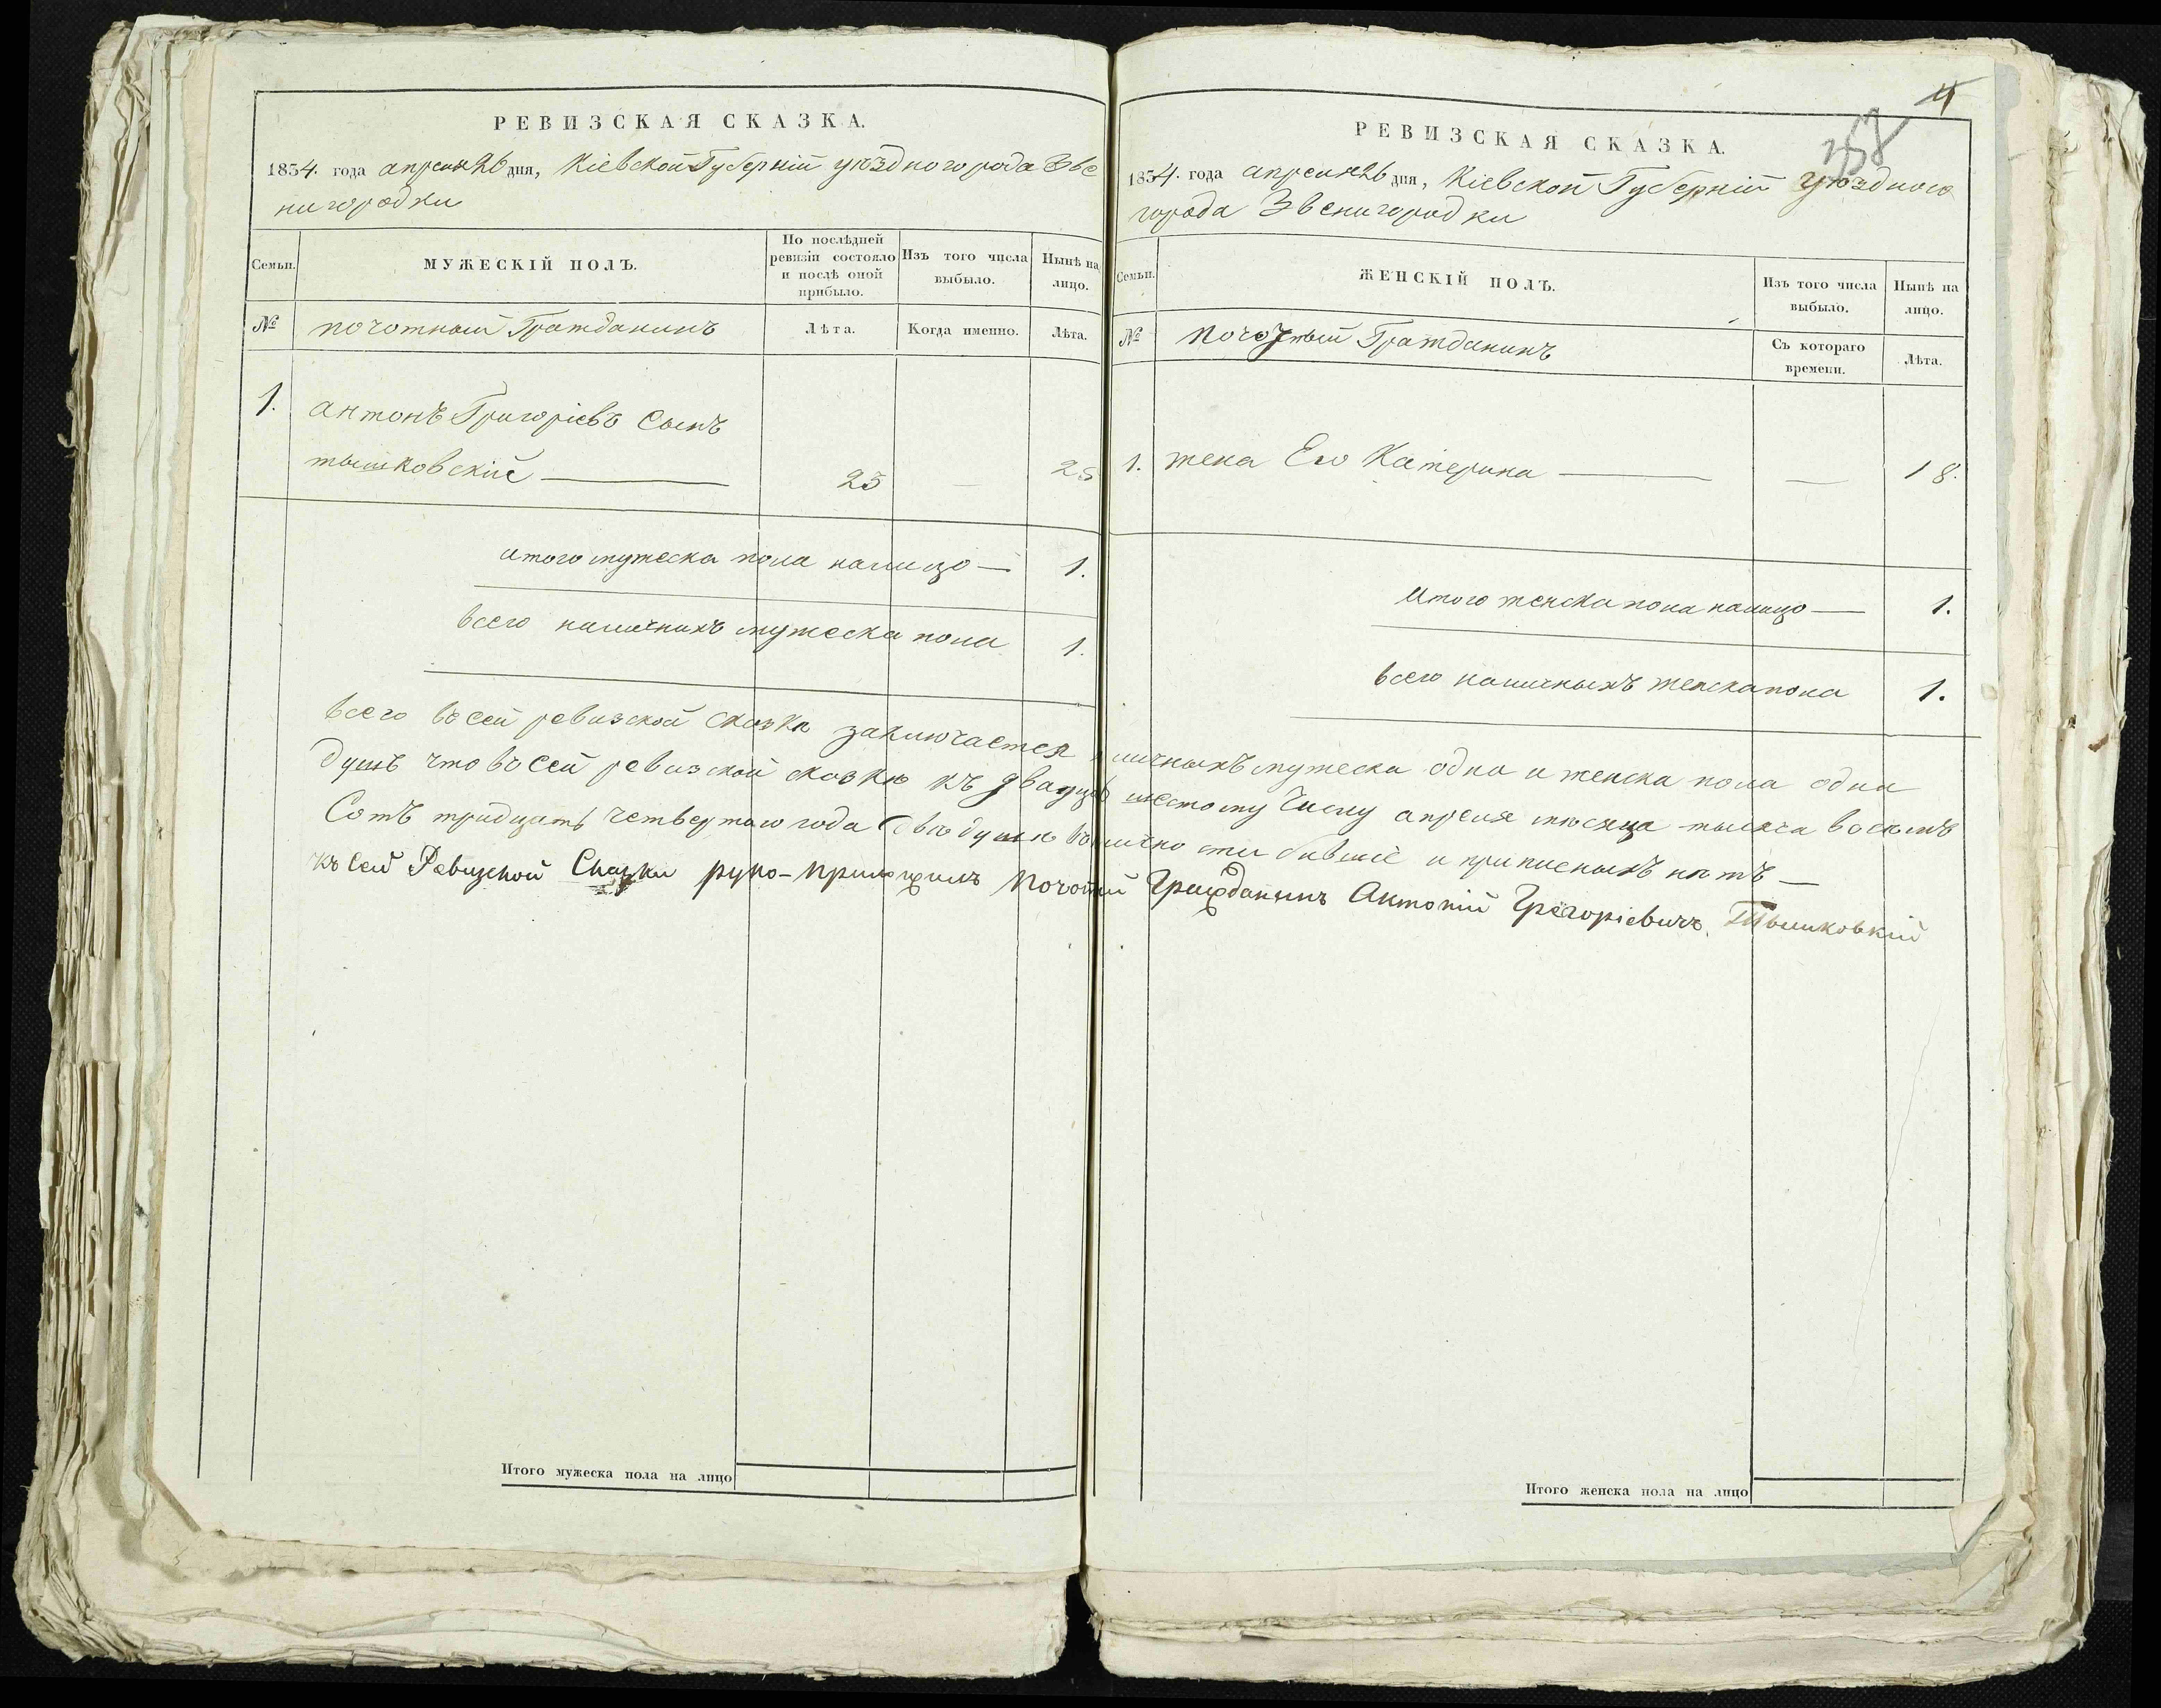 РЕВИЗСКАЯ СКАЗКА.
1834. года апреля 26 дня, Кіевской Губерній уюздного города Зве
нигородки
Семьи.
МУЖЕСКІЙ ПОЛЪ.
По послѣдней ревизіи состояло и послѣ оной прибыло.
Изъ того числа выбыло.
Нынѣ на лицо.
№
почотный Гражданинъ
Лѣта.
Когда именно.
Лѣта.
1. антонъ Григоріевъ Сынъ
тышковскій — 23 — 25
итого мужеска пола налицо — 1.
всего наличныхъ мужеска пола 1.
Итого мужеска пола на лицо
4
358
РЕВИЗСКАЯ СКАЗКА.
1834. года апреля 26 дня, Кіевской Губерній уюздного
города Звенигородки
Семьи.
ЖЕНСКІЙ ПОЛЪ.
Изъ того числа выбыло.
Нынѣ на лицо.
№
почотный Гражданинъ
Съ котораго времени.
Лѣта.
1. жена Его Катерина — — 18.
Итого женска пола налицо — 1.
всего наличныхъ женска пола 1.
всего восей ревизской сказки заключается личныхъ мужеска одна и женска пола одна
душъ что восей ревизской сказкю къ двадцать шестому Числу апреля мюсяца тысяча восемъ
Сотъ тридцать четвертаго года двю душю бывшіе и приписныхъ нютъ —
къ Сей Ревизской Сказки руко-приложилъ Почотный Гражданинъ Антоній Грегоріевичъ Тышковкій
Итого женска пола на лицо